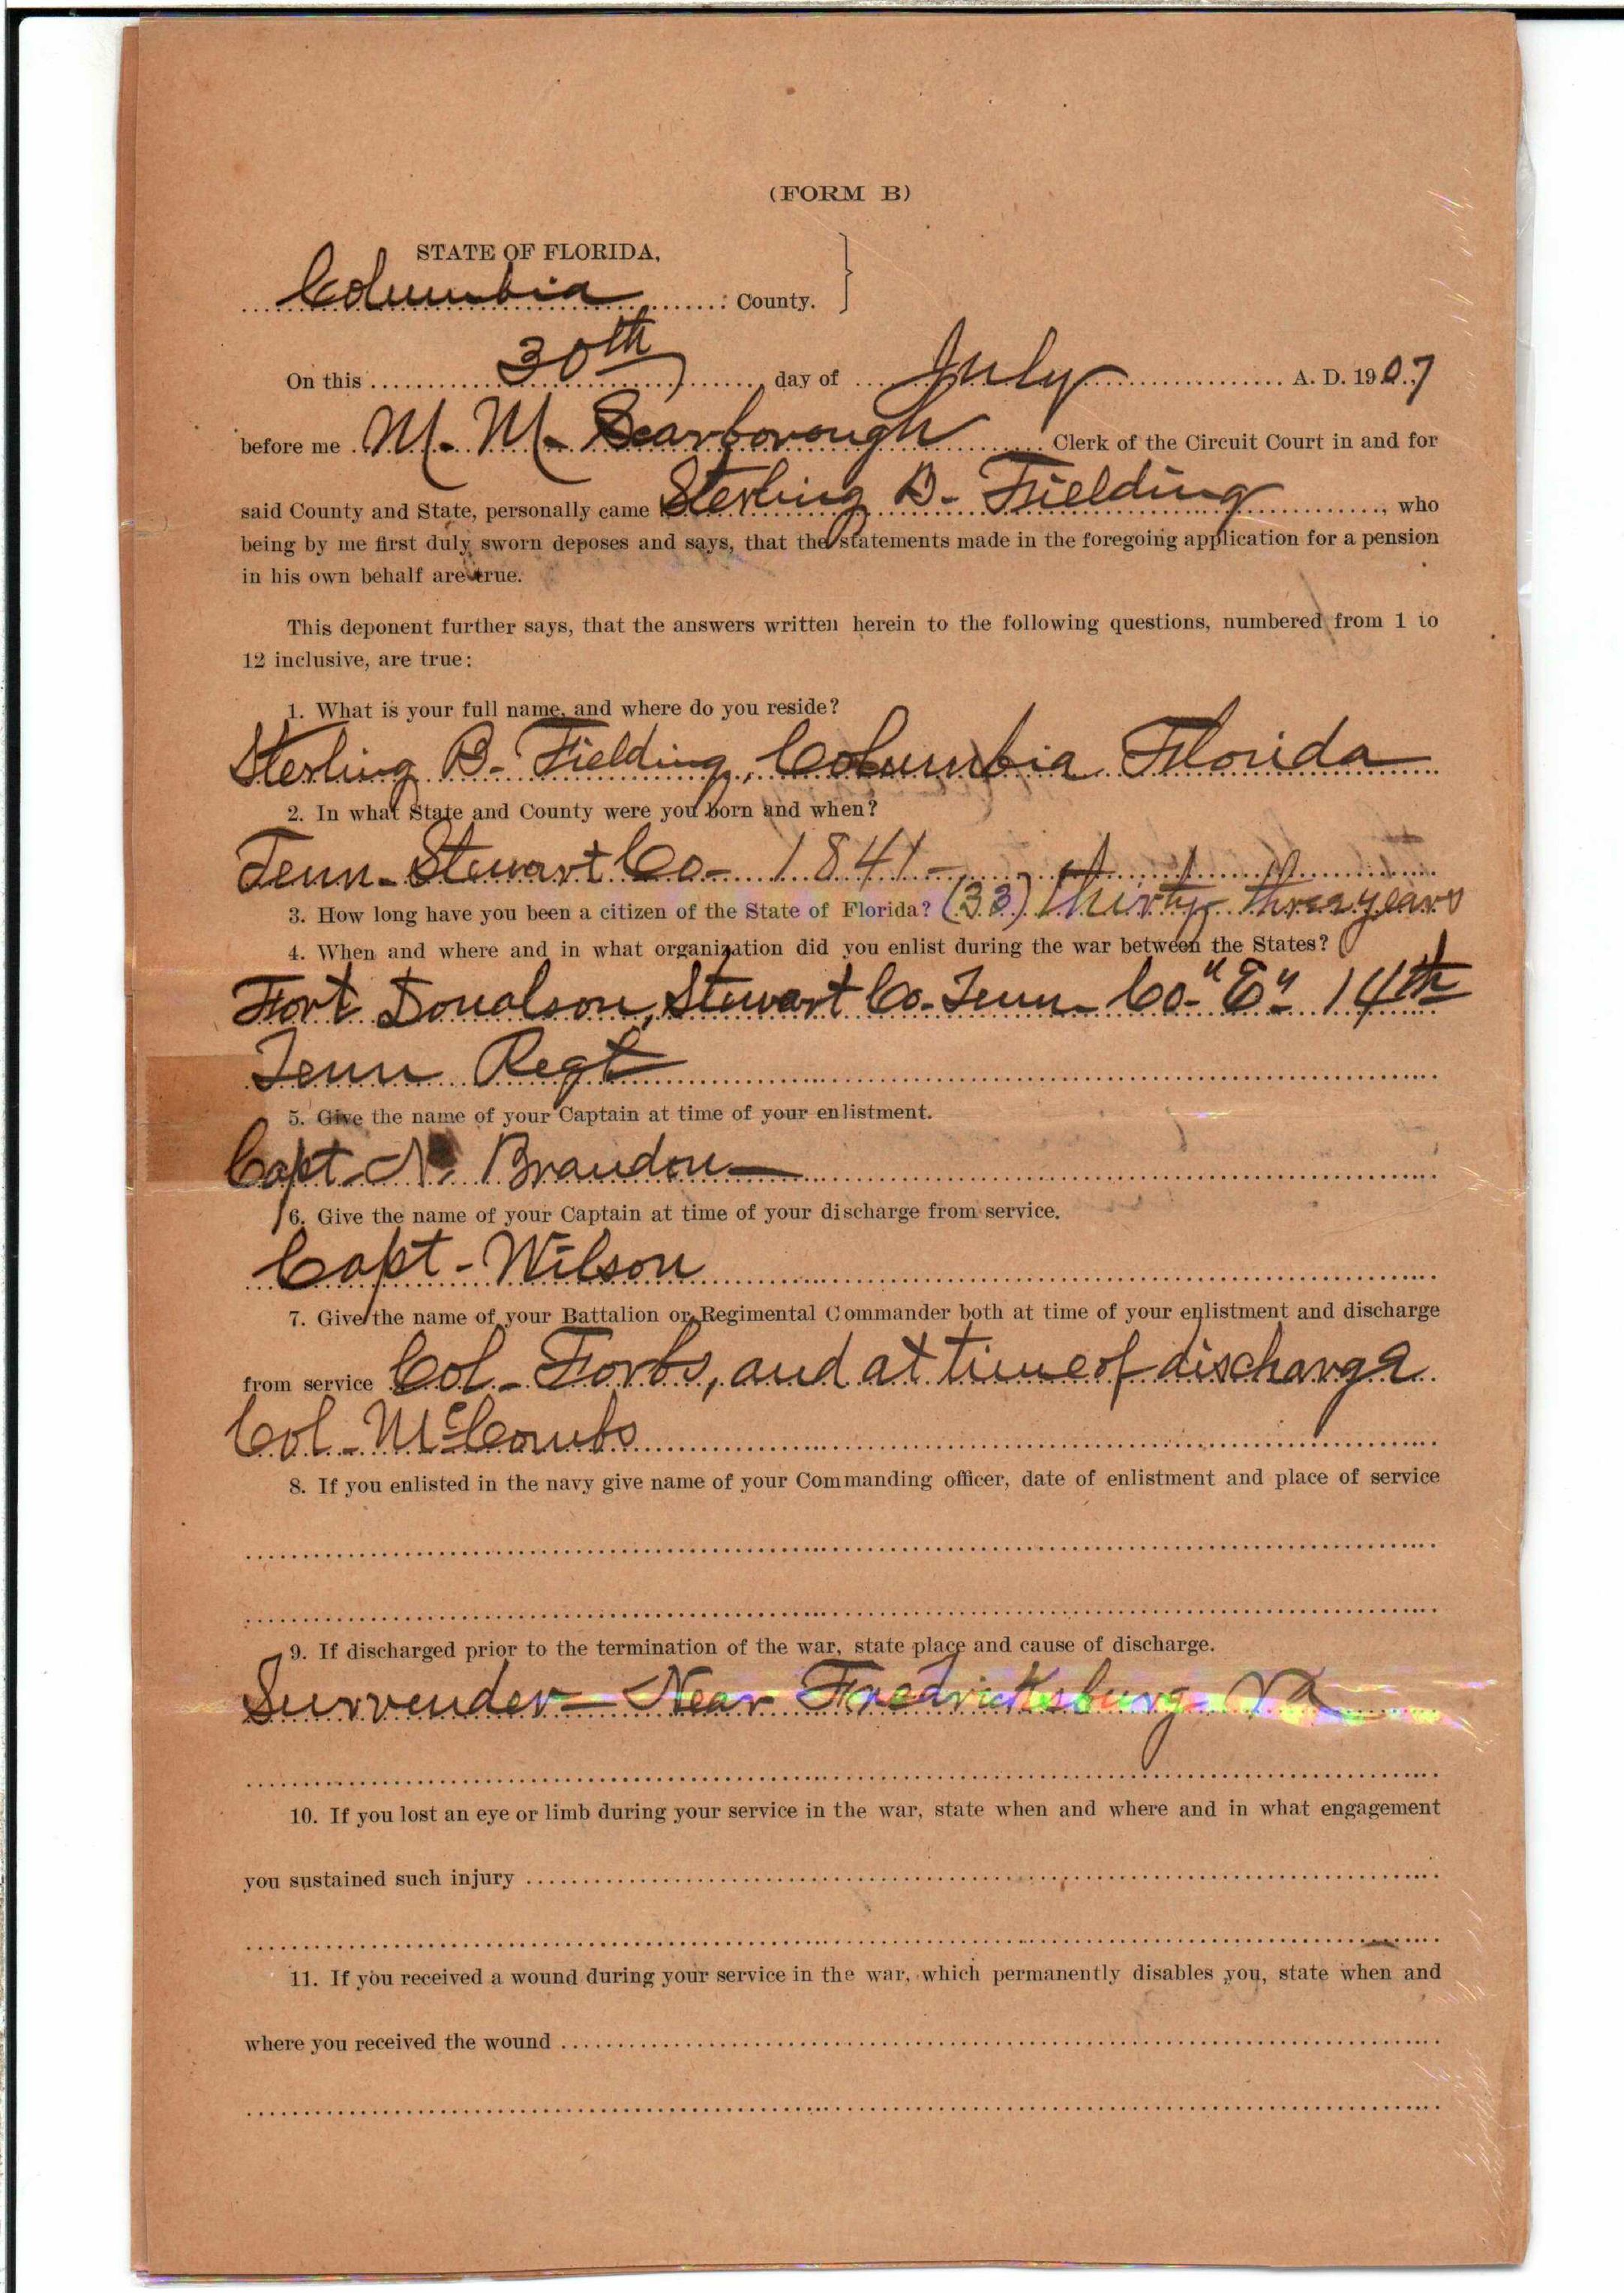 (FORM B)
STATE OF FLORIDA,
Columbia County.
On this 30th day of July A. D. 1907
before me M. M. Scarborough Clerk of the Circuit Court in and for
said County and State, personally came Sterling B. Fielding, who
being by me first duly sworn deposes and says, that the statements made in the foregoing application for a pension
in his own behalf are true.
This deponent further says, that the answers written herein to the following questions, numbered from 1 to
12 inclusive, are true:
1. What is your full name, and where do you reside?
Sterling B. Fielding, Columbia Florida
2. In what State and County were you born and when?
Tenn- Stewart Co- 1841-
3. How long have you been a citizen of the State of Florida? (33) thirty three years
4. When and where and in what organization did you enlist during the war between the States?
Fort Donalson, Stewart Co- Tenn- Co- "E" 14th
Tenn Regt
5. Give the name of your Captain at time of your enlistment.
Capt- N. Brandon
6. Give the name of your Captain at time of your discharge from service.
Capt- Wilson
7. Give the name of your Battalion or Regimental Commander both at time of your enlistment and discharge
from service Col- Forbs, and at time of discharge
Col- McCombs
8. If you enlisted in the navy give name of your Commanding officer, date of enlistment and place of service
9. If discharged prior to the termination of the war, state place and cause of discharge.
Surrender- Near Fredricksburg Va
10. If you lost an eye or limb during your service in the war, state when and where and in what engagement
you sustained such injury
11. If you received a wound during your service in the war, which permanently disables you, state when and
where you received the wound